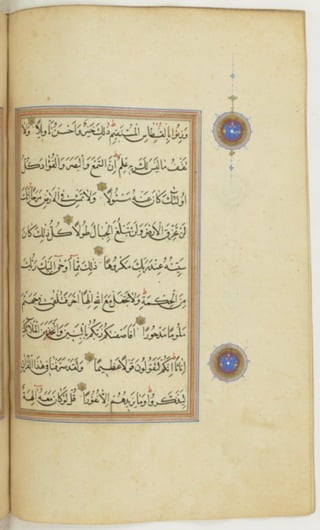 وَزِنُوا بِالْقِسْطَاسِ الْمُسْتَقِيمِ ذَٰلِكَ خَيْرٌ وَأَحْسَنُ تَأْوِيلًا وَلَا
تَقْفُ مَا لَيْسَ لَكَ بِهِ عِلْمٌ إِنَّ السَّمْعَ وَالْبَصَرَ وَالْفُؤَادَ كُلُّ
أُولَٰئِكَ كَانَ عَنْهُ مَسْئُولًا وَلَا تَمْشِ فِي الْأَرْضِ مَرَحًا إِنَّكَ
لَنْ تَخْرِقَ الْأَرْضَ وَلَنْ تَبْلُغَ الْجِبَالَ طُولًا كُلُّ ذَٰلِكَ كَانَ
سَيِّئُهُ عِنْدَ رَبِّكَ مَكْرُوهًا ذَٰلِكَ مِمَّا أَوْحَىٰ إِلَيْكَ رَبُّكَ
مِنَ الْحِكْمَةِ وَلَا تَجْعَلْ مَعَ اللَّهِ إِلَٰهًا آخَرَ فَتُلْقَىٰ فِي جَهَنَّمَ
مَلُومًا مَدْحُورًا أَفَأَصْفَاكُمْ رَبُّكُمْ بِالْبَنِينَ وَاتَّخَذَ مِنَ الْمَلَائِكَةِ
إِنَاثًا إِنَّكُمْ لَتَقُولُونَ قَوْلًا عَظِيمًا وَلَقَدْ صَرَّفْنَا فِي هَٰذَا الْقُرْآنِ
لِيَذَّكَّرُوا وَمَا يَزِيدُهُمْ إِلَّا نُفُورًا قُلْ لَوْ كَانَ مَعَهُ آلِهَةٌ